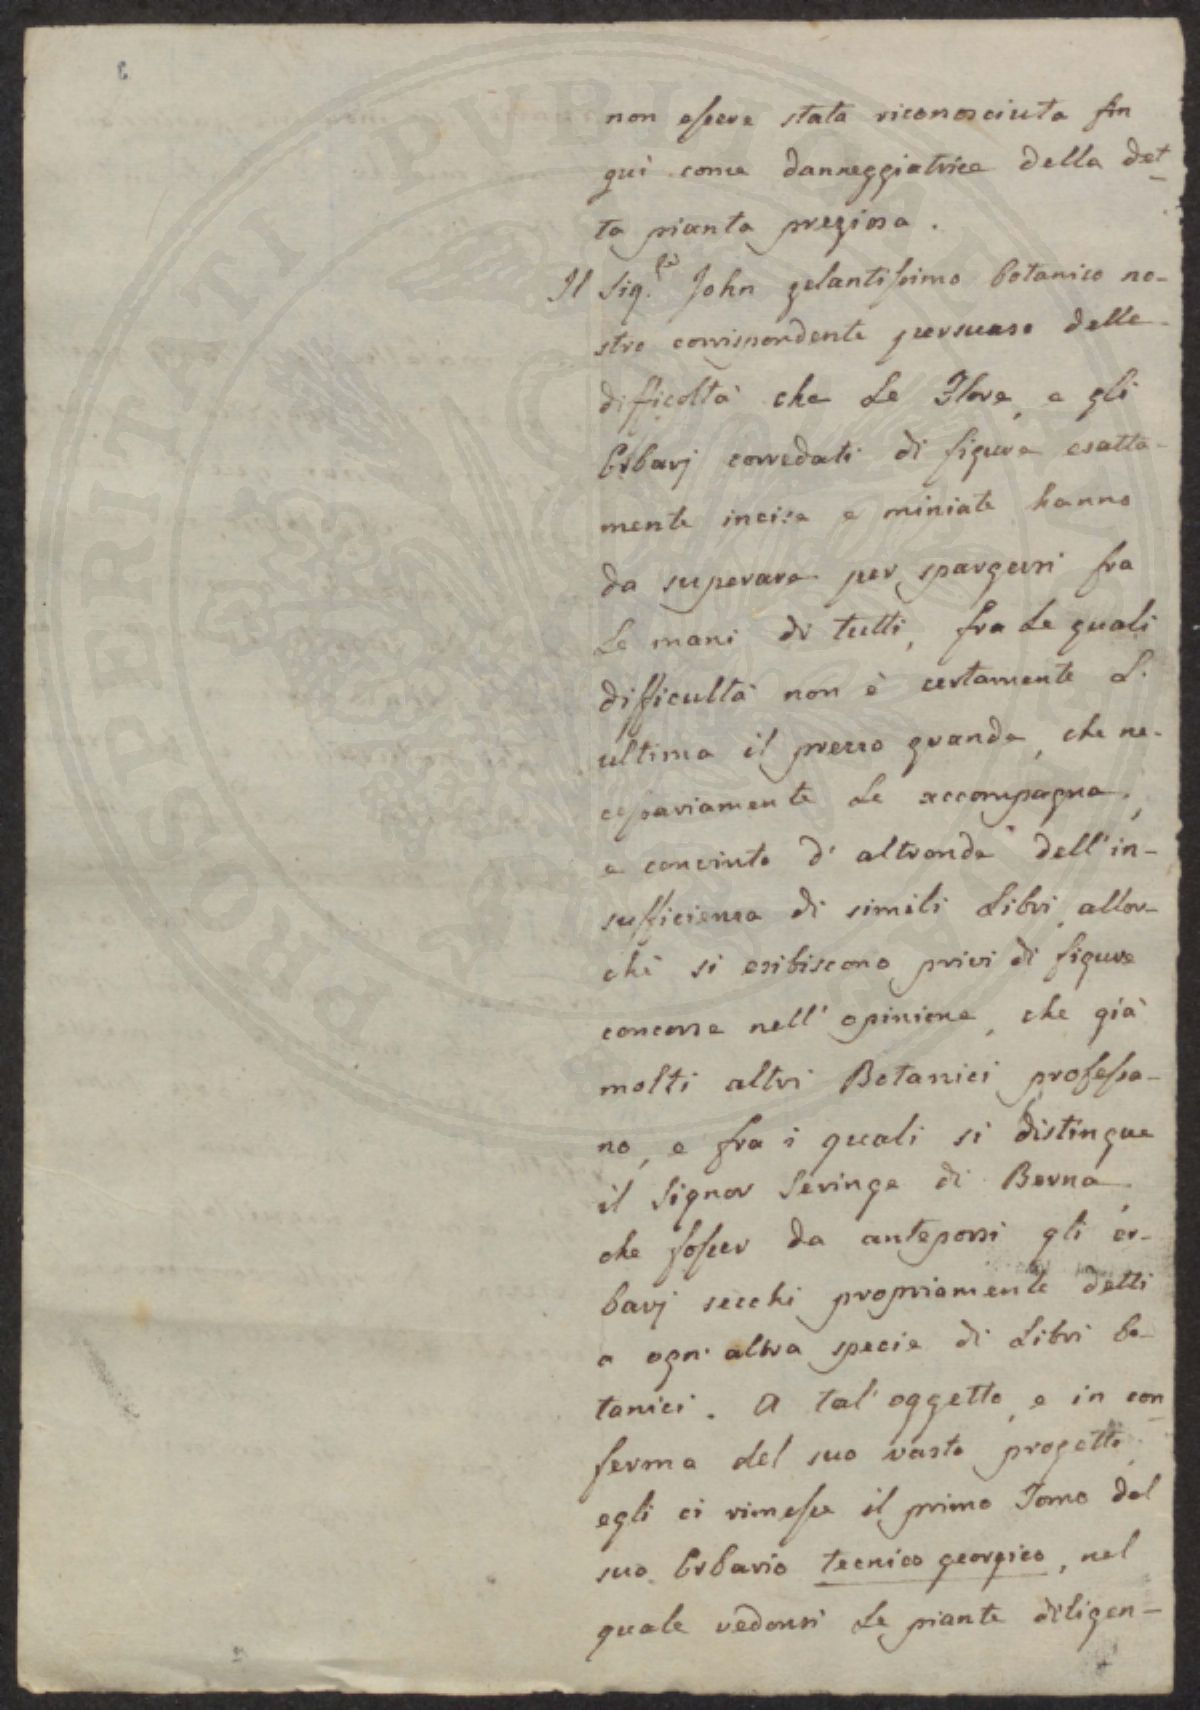 non essere stata riconosciuta fin
quì come danneggiatrice della det-
ta pianta preziosa.
Il Sig.re John zelantissimo botanico no-
stro corrispondente persuaso delle
difficoltà che Le Flore, e gli
Erbarj corredati di figure esatta-
mente incise e miniate hanno
da superare per spargersi fra
Le mani di tutti, fra Le quali
difficultà non è certamente L'
ultima il prezzo grande, che ne-
cessariamente Le accompagna,
e convinto d'altronde dell'in-
sufficienza di simili Libri, allor-
chè si esibiscono privi di figure
concorse nell'opinione, che già
molti altri Botanici professa-
no, e fra i quali si distingue
il Signor Seringe di Berna,
che fosser da anteporsi gli er-
barj secchi propriamente detti
a ogni altra specie di Libri bo-
tanici. A tal'oggetto, e in con-
ferma del suo vasto progetto,
egli ci rimesse il primo Tomo del
suo Erbario tecnico georgico, nel
quale vedonsi Le piante diligen-
PROSPERITATI PVBLICAE